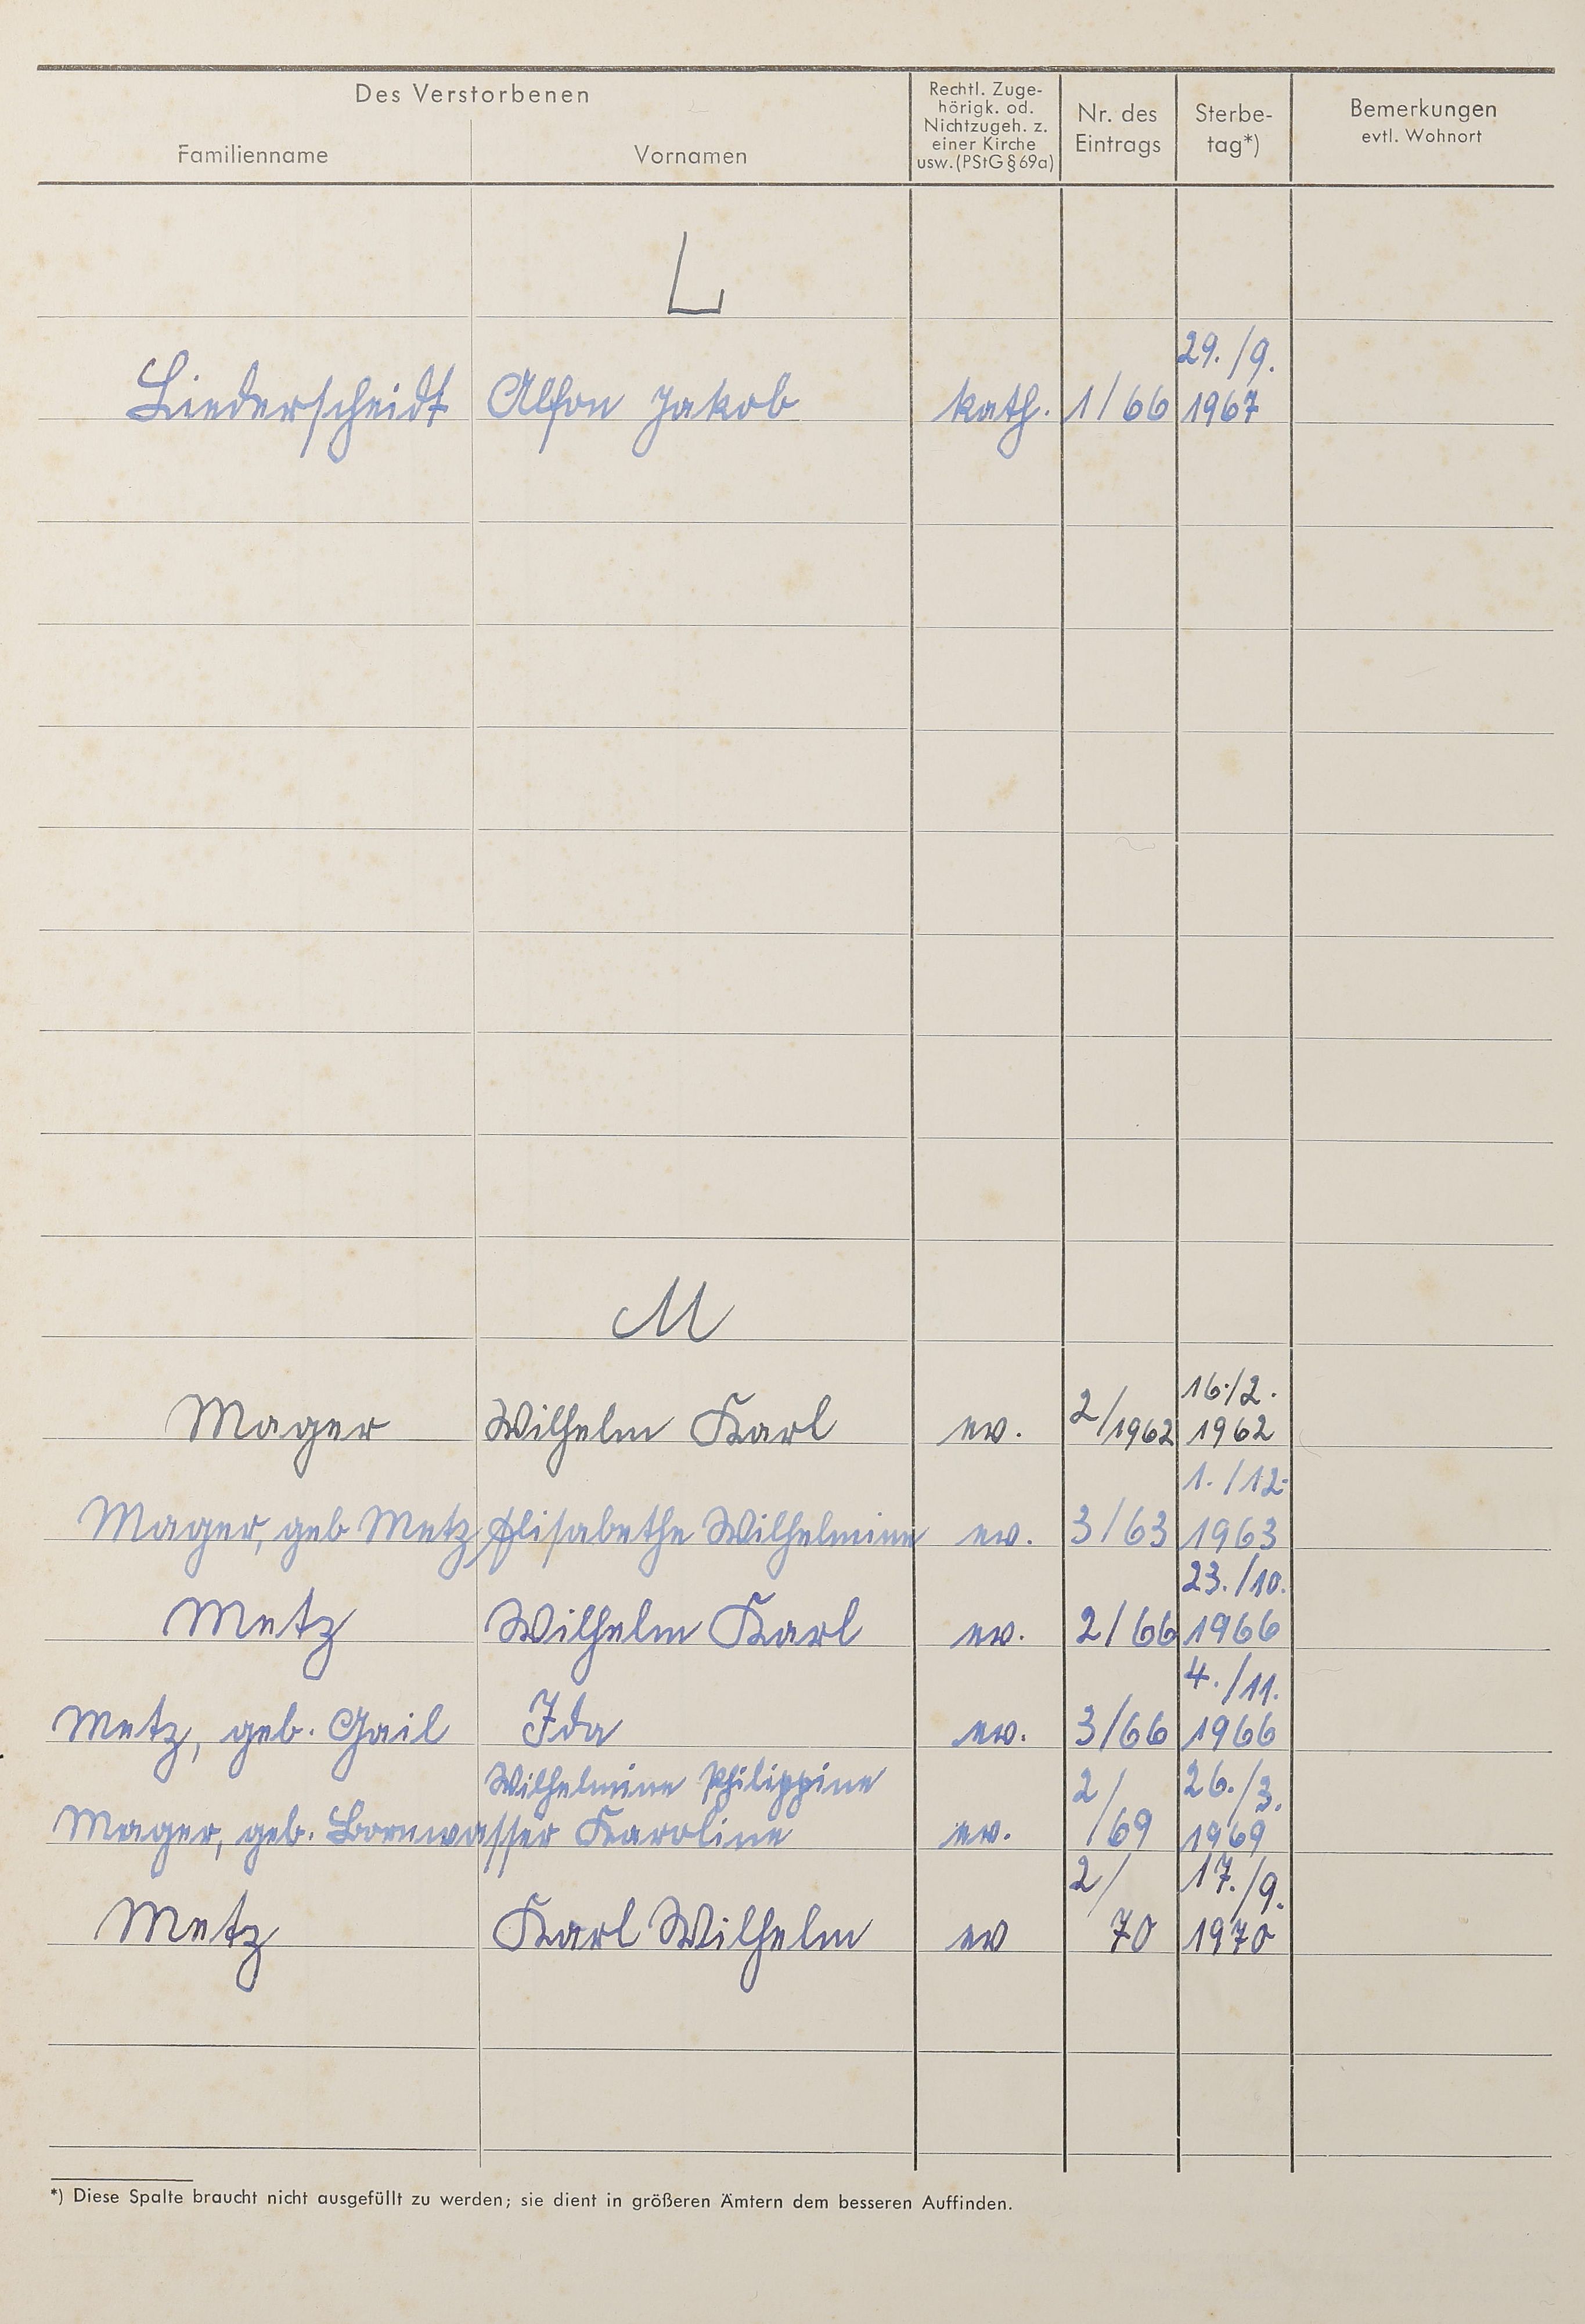 Des Verstorbenen
Familienname
Vornamen
Rechtl. Zuge-
hörigk. od.
Nichtzugeh. z.
einer Kirche
usw. (PStG § 69a)
Nr. des
Eintrags
Sterbe-
tag*)
Bemerkungen
evtl. Wohnort
L
29./9.
Liederscheidt Alfon Jakob kath. 1/66 1967
M
16./2.
Mager Wilhelm Karl ev. 2/1962 1962
1./12.
Mager, geb Metz Elisabethe Wilhelmine ev. 3/63 1963
23./10.
Metz Wilhelm Karl ev. 2/66 1966
4./11.
Metz, geb. Gail Ida ev. 3/66 1966
Wilhelmine Philippine 2/ 26./3.
Mager, geb. Bornwasser Karoline ev. 69 1969
2/ 17./9.
Metz Karl Wilhelm ev 70 1970
*) Diese Spalte braucht nicht ausgefüllt zu werden; sie dient in größeren Ämtern dem besseren Auffinden.